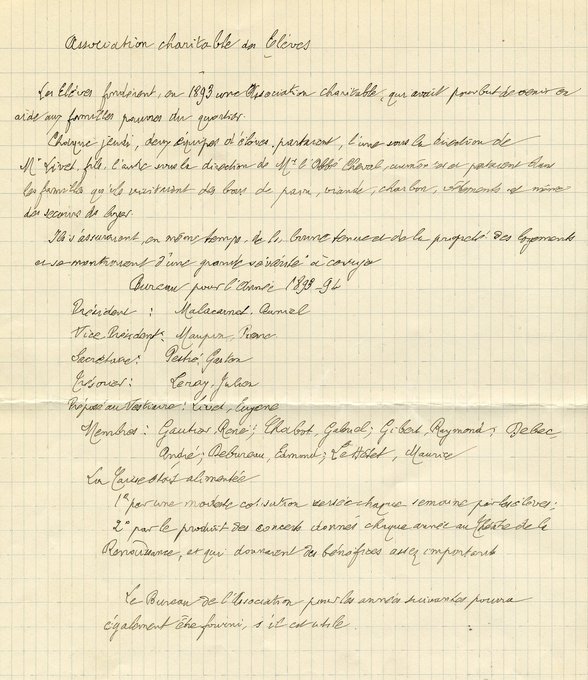 Association charitable des Elèves
Les Elèves fondèrent, en 1893 une Association charitable, qui avait pour but de venir en
aide aux familles pauvres du quartier.
Chaque jeudi, deux équipes d'élèves partaient, l'une sous la direction de
Mr Livet fils, l'autre sous la direction de Mr l'Abbé Cheval, et portaient dans
les familles qu'ils visitaient des bons de pain, viande, charbon, vêtements et même
des secours de loyer.
Ils s'assuraient, en même temps, de la bonne tenue et de la propreté des logements
et se montraient d'une grande sévérité à cet égard
Bureau pour l'Année 1893-94
Président : Malacarnet,
Vice Président : Maupin, Pierre
Secrétaire : Pestré, Gaston
Trésorier : Leray, Julien
Préposé au Vestiaire : Livet, Eugène
Membres : Gautier, René ; Chabot, Gabriel ; Gibert, Raymond ; Debec,
André ; Debureau, ; Le Hétet, Maurice
La Caisse était alimentée
1° par une modeste cotisation versée chaque semaine par les élèves ;
2° par le produit des concerts donnés chaque année au Théâtre de la
Renaissance, et qui donnaient des bénéfices assez importants
Le Bureau de l'Association pour les années suivantes pourra
également être fourni, s'il est utile.